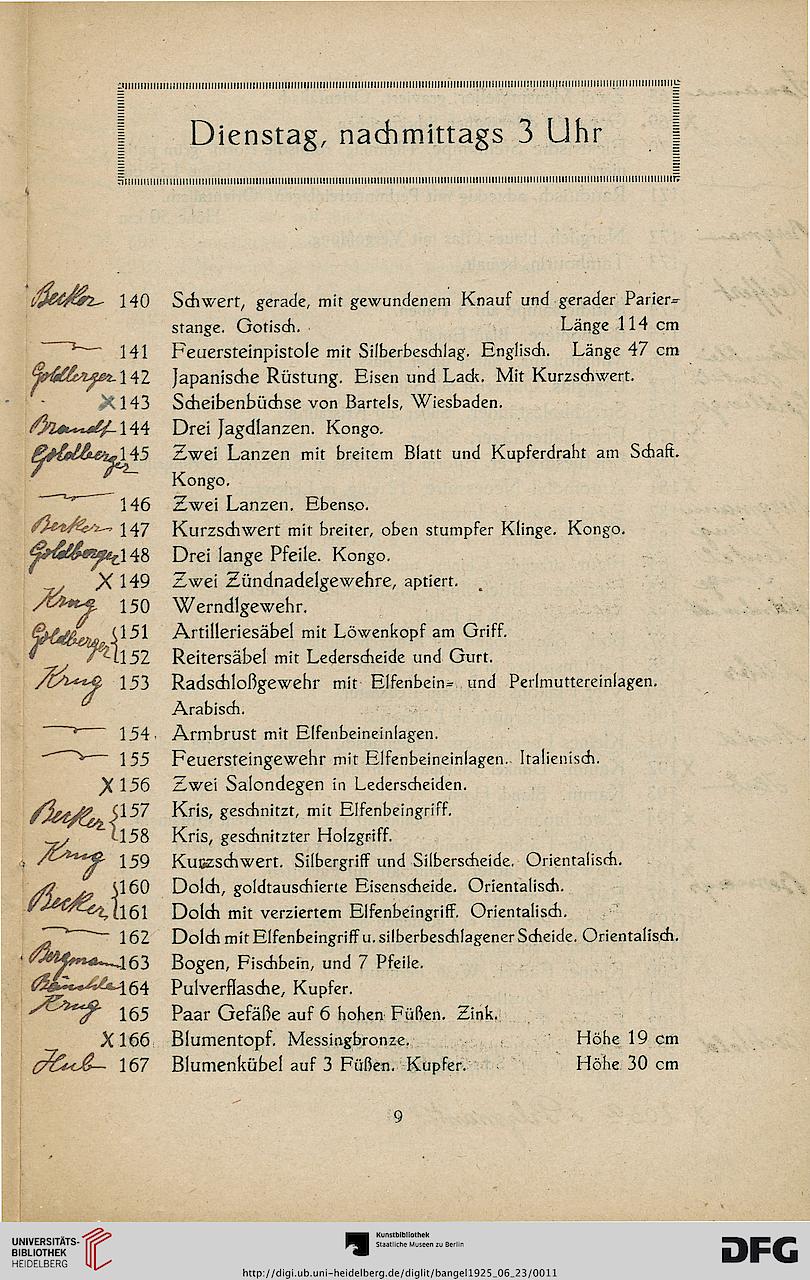 Dienstag, nachmittags 3 Uhr
Becker 140 Schwert, gerade, mit gewundenem Knauf und gerader Parier-
stange. Gotisch. Länge 114 cm
141 Feuersteinpistole mit Silberbeschlag. Englisch. Länge 47 cm
Goldberger 142 Japanische Rüstung. Eisen und Lack. Mit Kurzschwert.
X 143 Scheibenbüchse von Bartels, Wiesbaden.
Brandt 144 Drei Jagdlanzen. Kongo.
Goldberger 145 Zwei Lanzen mit breitem Blatt und Kupferdraht am Schaft.
Kongo.
146 Zwei Lanzen. Ebenso.
Becker 147 Kurzschwert mit breiter, oben stumpfer Klinge. Kongo.
Goldberger 148 Drei lange Pfeile. Kongo.
X 149 Zwei Zündnadelgewehre, aptiert.
Krug 150 Werndlgewehr.
Goldberger 151 Artilleriesäbel mit Löwenkopf am Griff.
152 Reitersäbel mit Lederscheide und Gurt.
Krug 153 Radschloßgewehr mit Elfenbein- und Perlmuttereinlagen.
Arabisch.
154 Armbrust mit Elfenbeineinlagen.
155 Feuersteingewehr mit Elfenbeineinlagen. Italienisch.
X 156 Zwei Salondegen in Lederscheiden.
Becker 157 Kris, geschnitzt, mit Elfenbeingriff.
158 Kris, geschnitzter Holzgriff.
Krug 159 Kurzschwert. Silbergriff und Silberscheide. Orientalisch.
Becker 160 Dolch, goldtauschierte Eisenscheide. Orientalisch.
161 Dolch mit verziertem Elfenbeingriff. Orientalisch.
162 Dolch mit Elfenbeingriff u. silberbeschlagener Scheide. Orientalisch.
Bergmann 163 Bogen, Fischbein, und 7 Pfeile.
164 Pulverflasche, Kupfer.
Krug 165 Paar Gefäße auf 6 hohen Füßen. Zink.
X 166 Blumentopf. Messingbronze. Höhe 19 cm
Hub 167 Blumenkübel auf 3 Füßen. Kupfer. Höhe 30 cm
9
UNIVERSITÄTS-
BIBLIOTHEK
HEIDELBERG
Kunstbibliothek
Staatliche Museen zu Berlin
DFG
http://digi.ub.uni-heidelberg.de/diglit/bangel1925_06_23/0011